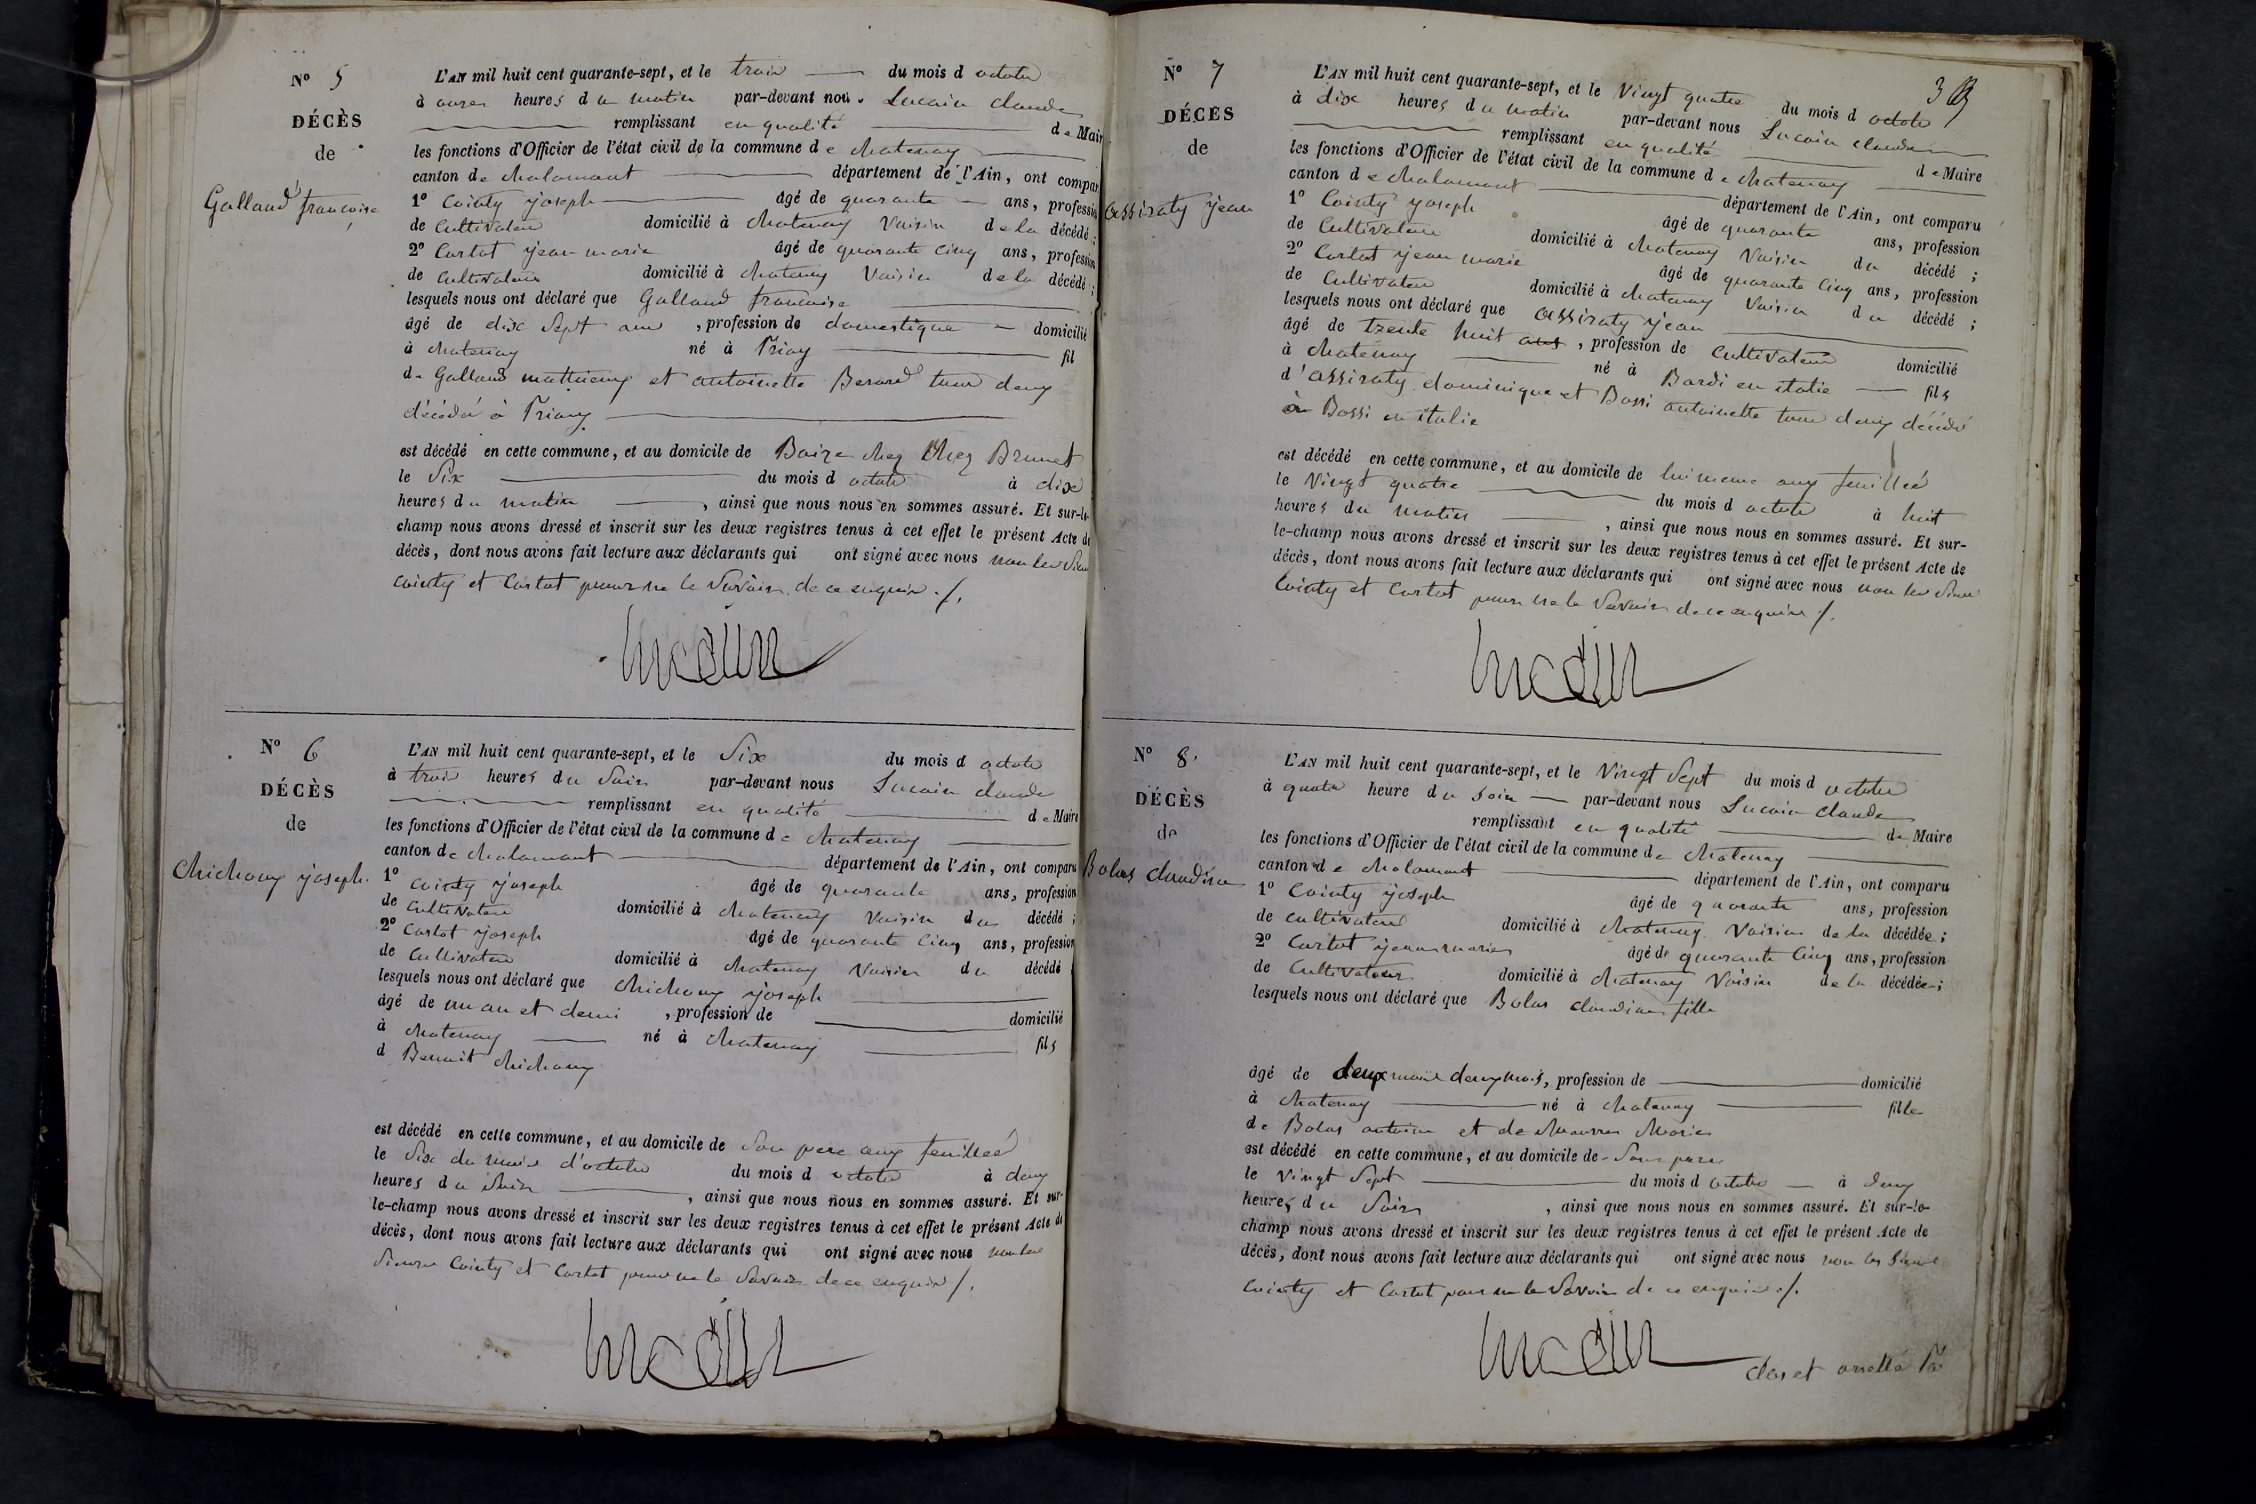 N° 5
DÉCÈS
de
Galland françoise
L'AN mil huit cent quarante-sept, et le trois du mois d octobre
à onze heures du matin par-devant nous Lucain claude
remplissant en qualité de Maire
les fonctions d'Officier de l'état civil de la commune de chatenay
canton de chalamont département de l'Ain, ont compar
1° Cointy joseph âgé de quarante ans, profession
de Cultivateur domicilié à chatenay Voisin de la décédé ;
2° Cartet jean marie âgé de quarante cinq ans, profession
de cultivateur domicilié à chatenay Voisin de la décédé ;
lesquels nous ont déclaré que Galland francoise
âgé de dix Sept ans , profession de domestique domicilié
à chatenay né à Priay fil
de Galland mathieu et antoinette Berard tous deux
décédé à Priay
est décédé en cette commune, et au domicile de chez chez Brunet
le Six du mois d octobre à dix
heures du matin , ainsi que nous nous en sommes assuré. Et sur-le-
champ nous avons dressé et inscrit sur les deux registres tenus à cet effet le présent Acte de
décès, dont nous avons fait lecture aux déclarants qui ont signé avec nous non les Sieur
cointy et Cartet pour ne le Savoir de ce enquis ./.
Lucain
N° 6
DÉCÈS
de
chichoux joseph
L'AN mil huit cent quarante-sept, et le Six du mois d octobre
à trois heures du Soir par-devant nous Lucain claude
remplissant en qualité de Maire
les fonctions d'Officier de l'état civil de la commune de chatenay
canton de chalamont département de l'Ain, ont comparu
1° cointy joseph âgé de quarante ans, profession
de cultivateur domicilié à chatenay Voisin du décédé ;
2° Cartet joseph âgé de quarante cinq ans, profession
de Cultivateur domicilié à chatenay Voisin du décédé
lesquels nous ont déclaré que chichoux joseph
âgé de un an et demi , profession de domicilié
à chatenay né à chatenay fils
d Benoit chichoux
est décédé en cette commune, et au domicile de Son pere aux feuillés
le Six du mois d'octobre du mois d octobre à deux
heures du Soir , ainsi que nous nous en sommes assuré. Et sur-
le-champ nous avons dressé et inscrit sur les deux registres tenus à cet effet le présent Acte de
décès, dont nous avons fait lecture aux déclarants qui ont signé avec nous non les
Sieurs Cointy et Cartet pour ne le Savoir de ce enquis /.
Lucain
N° 7
DÉCÈS
de
assiraty jean
L'AN mil huit cent quarante-sept, et le Vingt quatre du mois d octobre
à dix heures du matin par-devant nous Lucain claude
remplissant en qualité de Maire
les fonctions d'Officier de l'état civil de la commune de chatenay
canton de chalamont département de l'Ain, ont comparu
1° Cointy joseph âgé de quarante ans, profession
de Cultivateur domicilié à chatenay Voisin du décédé ;
2° Cartet jean marie âgé de quarante cinq ans, profession
de Cultivateur domicilié à chatenay Voisin du décédé ;
lesquels nous ont déclaré que assiraty jean
âgé de trente huit ans , profession de cultivateur domicilié
à chatenay né à Bardi en italie fils
d'assiraty dominique et Bossi antoinette tous deux décédé
à Bossi en italie
est décédé en cette commune, et au domicile de lui meme aux feuillés
le Vingt quatre du mois d octobre à huit
heures du matin , ainsi que nous nous en sommes assuré. Et sur-
le-champ nous avons dressé et inscrit sur les deux registres tenus à cet effet le présent Acte de
décès, dont nous avons fait lecture aux déclarants qui ont signé avec nous non les Sieur
Cointy et Cartet pour ne le Savoir de ce enquis /.
Lucain
N° 8.
DÉCÈS
de
Bolas claudine
L'AN mil huit cent quarante-sept, et le Vingt Sept du mois d octobre
à quatre heure du soir par-devant nous Lucain claude
remplissant en qualité de Maire
les fonctions d'Officier de l'état civil de la commune de chatenay
canton de chalamont département de l'Ain, ont comparu
1° Cointy joseph âgé de quarante ans, profession
de cultivateur domicilié à chatenay Voisin de la décédée ;
2° Cartet jean marie âgé de quarante Cinq ans, profession
de Cultivateur domicilié à chatenay Voisin de la décédée ;
lesquels nous ont déclaré que Bolas claudine fille
âgé de deux mois deux mois, profession de domicilié
à chatenay né à chatenay fille
de Bolas antoine et de Marie
est décédé en cette commune, et au domicile de Son pere
le Vingt Sept du mois d octobre à deux
heures du Soir , ainsi que nous nous en sommes assuré. Et sur-le-
champ nous avons dressé et inscrit sur les deux registres tenus à cet effet le présent Acte de
décès, dont nous avons fait lecture aux déclarants qui ont signé avec nous non les Sieur
Cointy et Cartet pour ne le Savoir de ce enquis ./.
Lucain
clos et arretté